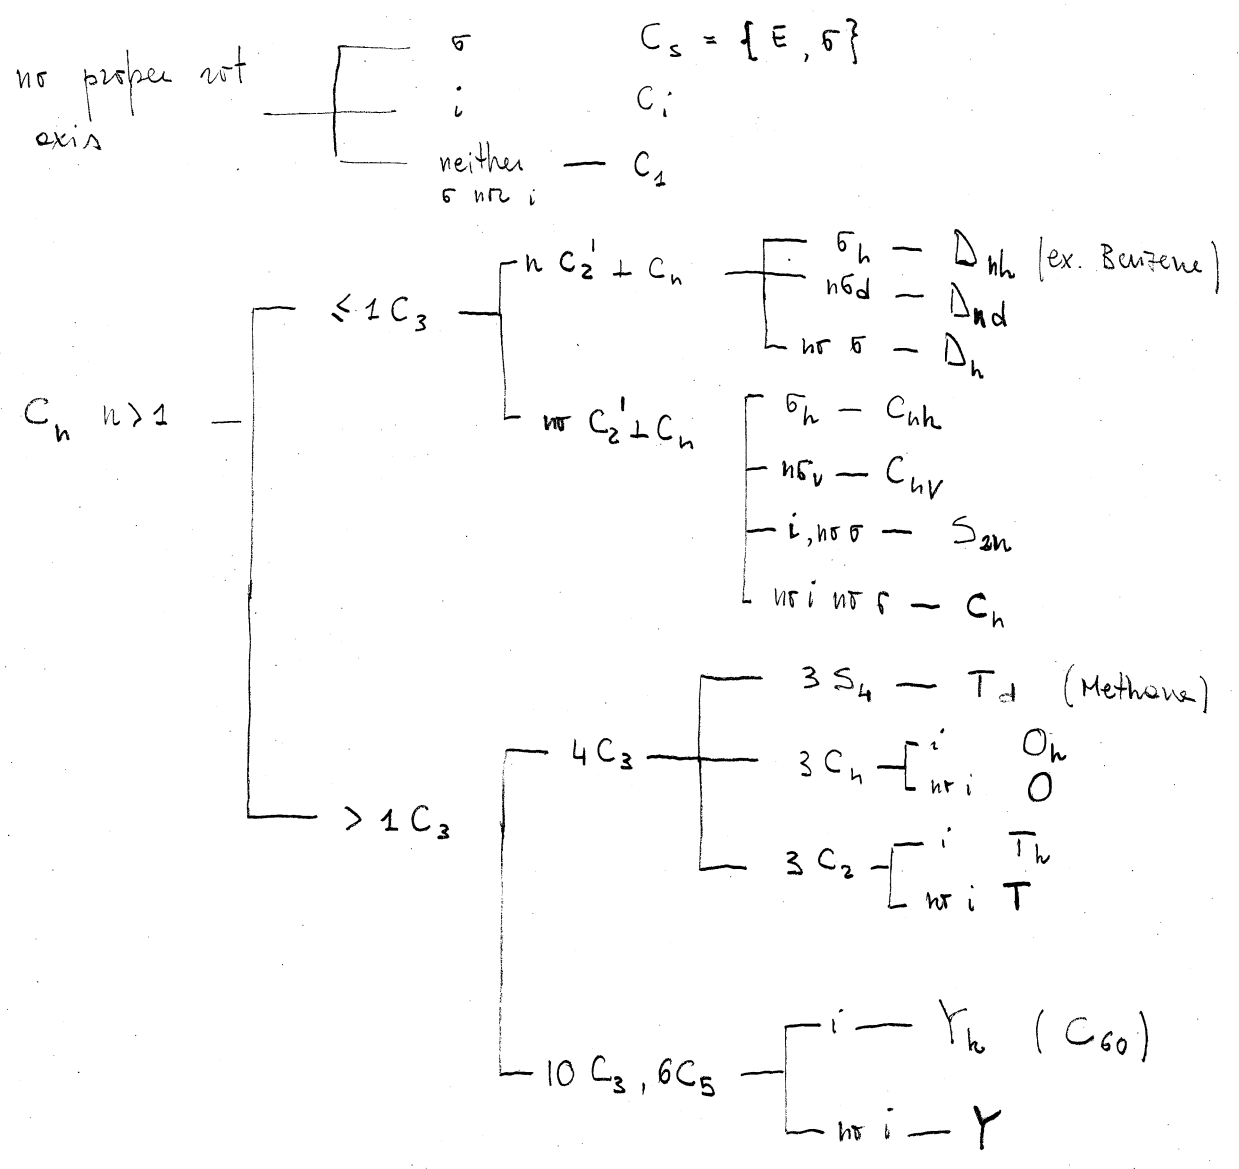 no proper rot
axis
σ C_s = {E, σ}
i C_i
neither — C_1
σ nor i
C_n n>1
≤ 1 C_3
n C_2' ⊥ C_n
σ_h — D_nh (ex. Benzene)
nσ_d — D_nd
no σ — D_n
no C_2' ⊥ C_n
σ_h — C_nh
nσ_v — C_nv
i, no σ — S_2n
no i no σ — C_n
> 1 C_3
4 C_3
3 S_4 — T_d (Methane)
3 C_n
i O_h
no i O
3 C_2
i T_h
no i T
10 C_3, 6 C_5
i — Y_h (C_60)
no i — Y